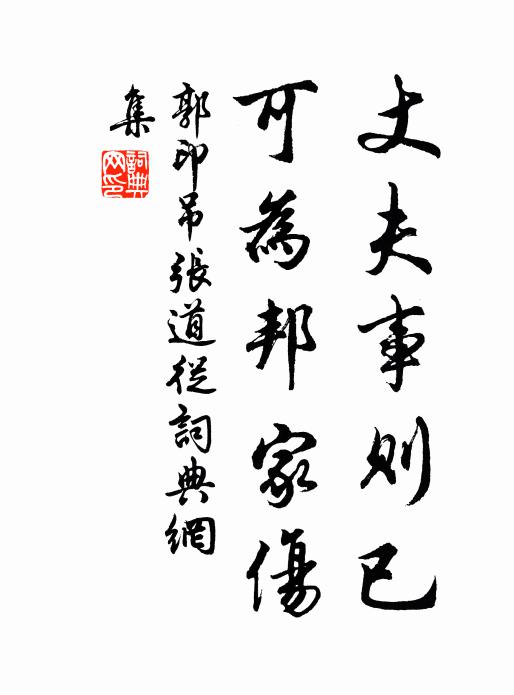 丈夫事则已
可為邦家傷
郭印吊張道從詞典網
集
詞典
网印